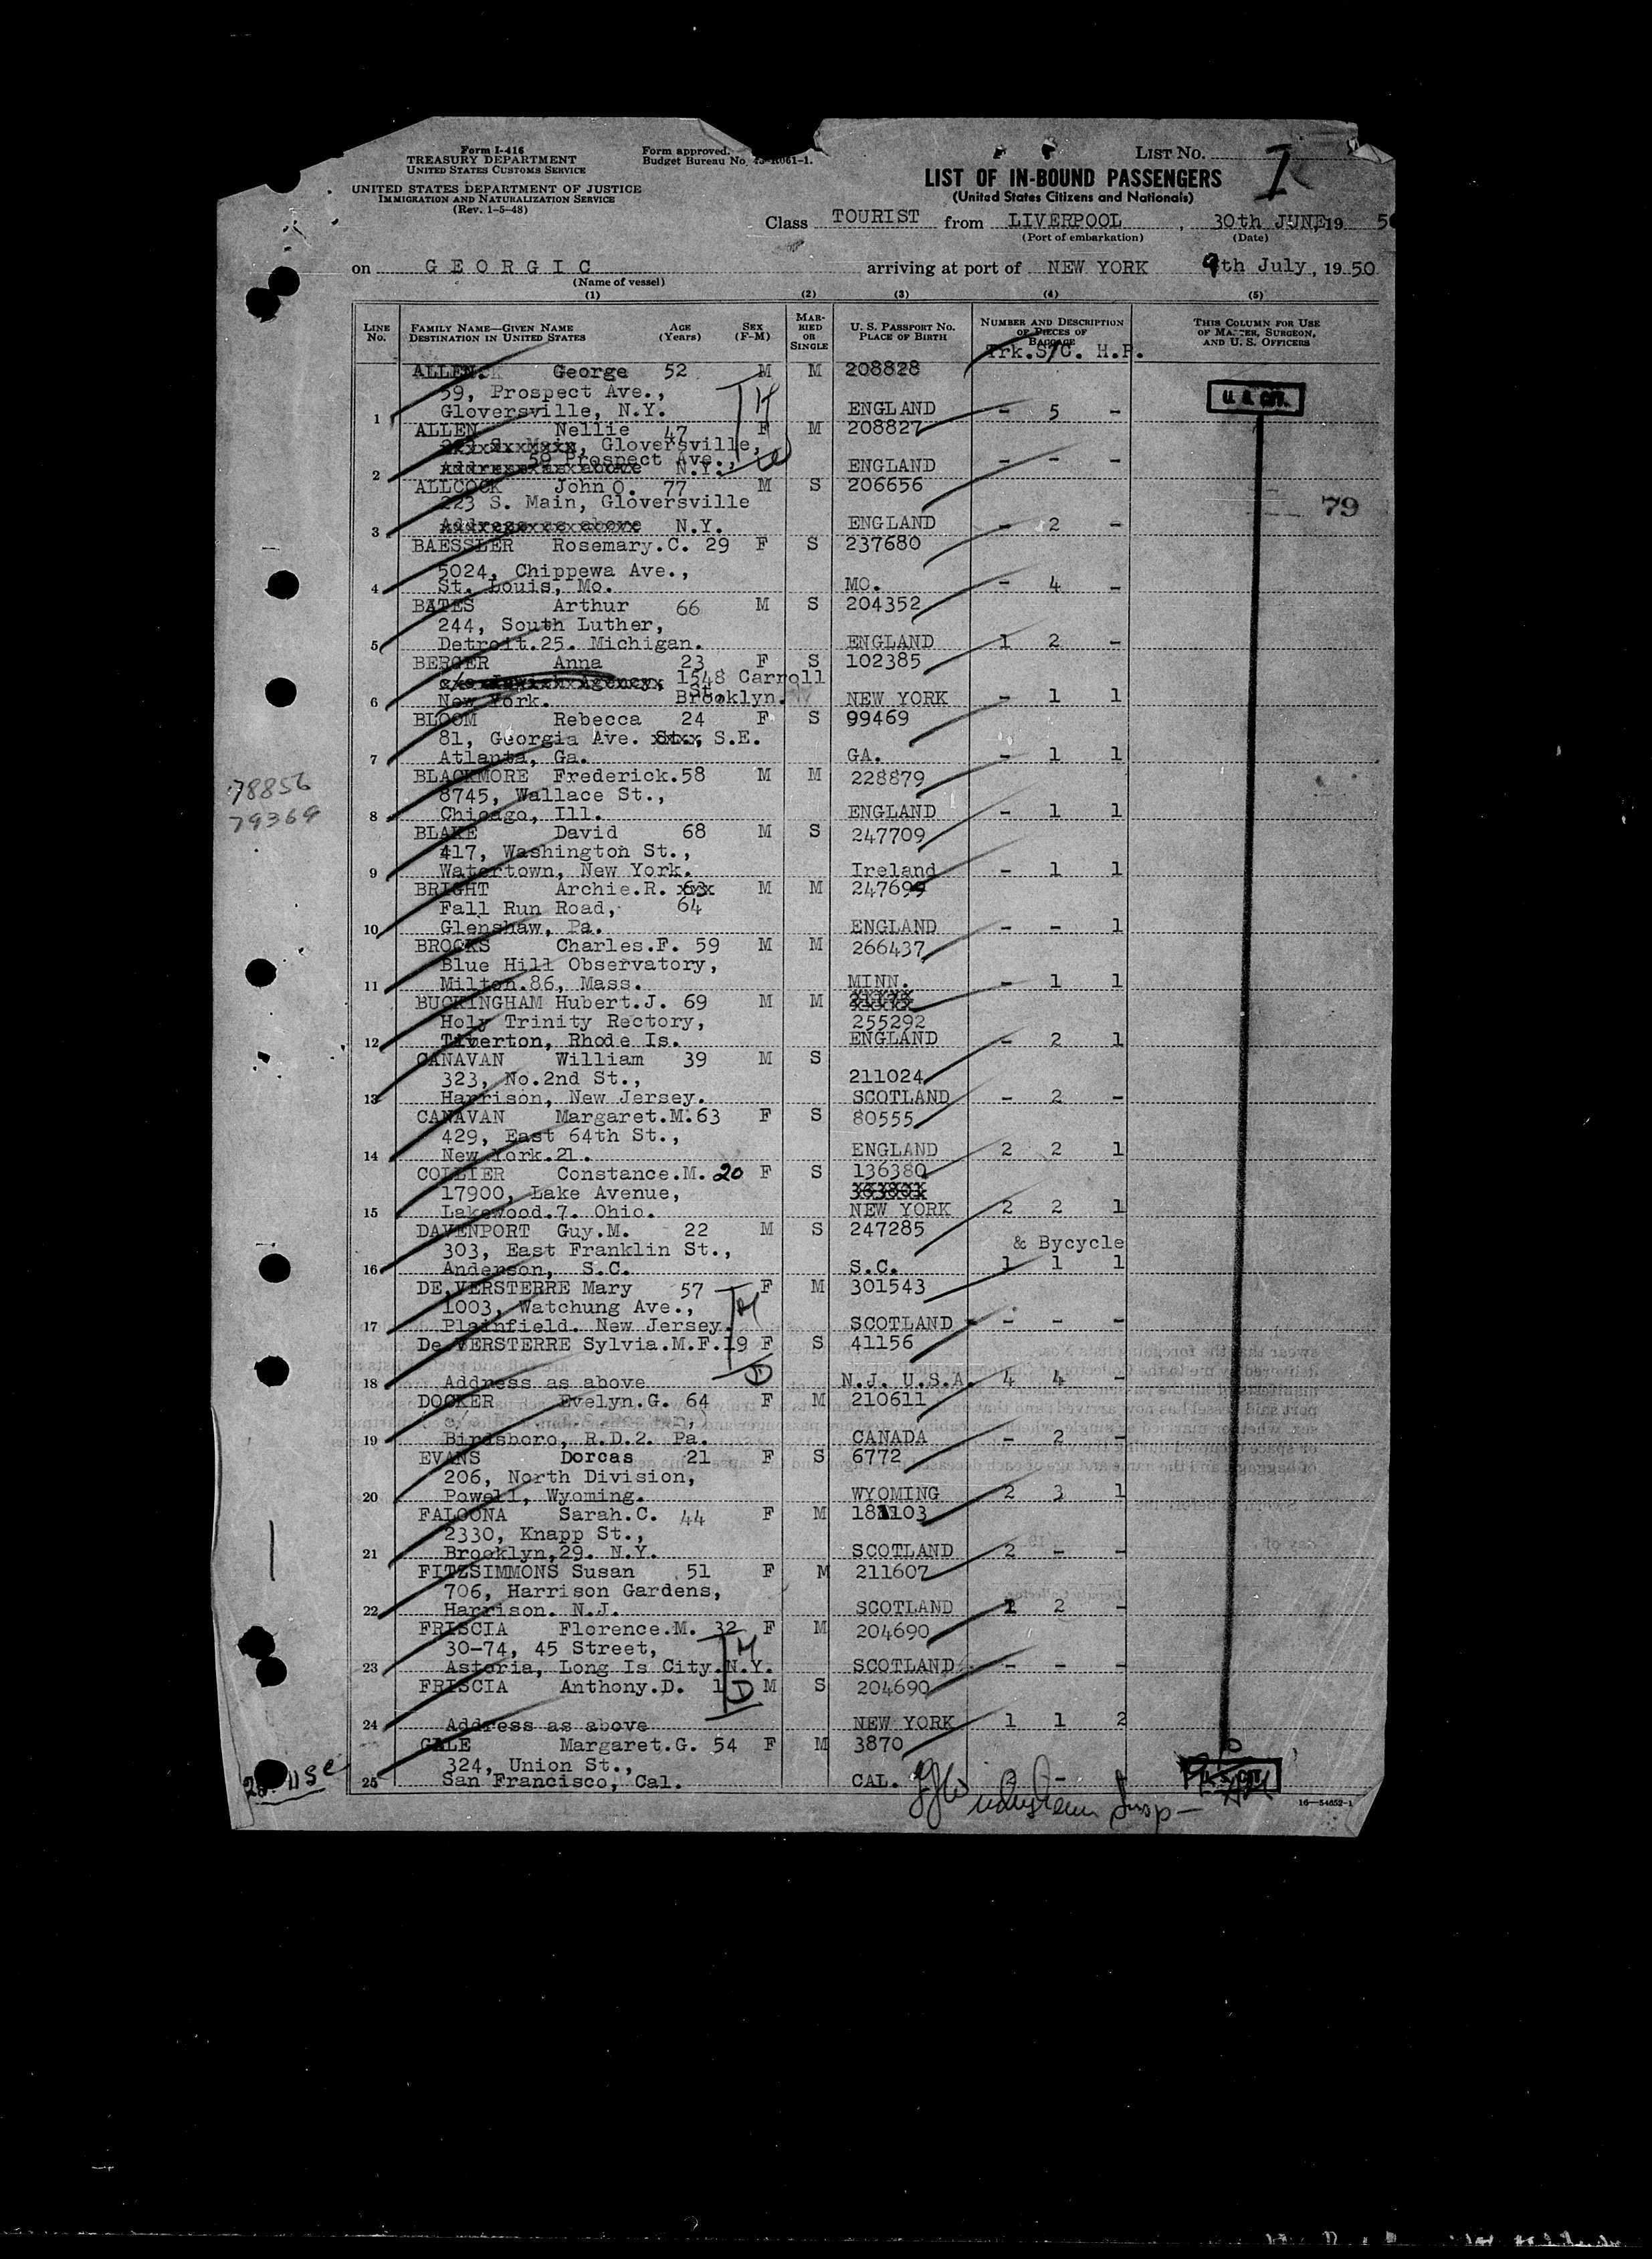 Form I-416
TREASURY DEPARTMENT
UNITED STATES CUSTOMS SERVICE
UNITED STATES DEPARTMENT OF JUSTICE
IMMIGRATION AND NATURALIZATION SERVICE
(Rev. 1-5-48)
Form approved.
Budget Bureau No. 43-R061-1.
LIST NO. I
LIST OF IN-BOUND PASSENGERS
(United States Citizens and Nationals)
Class TOURIST from LIVERPOOL, 30th JUNE, 19 50
(Port of embarkation) (Date)
on GEORGIC arriving at port of NEW YORK 9th July, 1950
(Name of vessel)
(1) (2) (3) (4) (5)
LINE NO. FAMILY NAME—GIVEN NAME DESTINATION IN UNITED STATES AGE (Years) SEX (F-M) MARRIED OR SINGLE U. S. PASSPORT NO. PLACE OF BIRTH NUMBER AND DESCRIPTION OF PIECES OF BAGGAGE THIS COLUMN FOR USE OF MASTER, SURGEON, AND U. S. OFFICERS
Trk. S/C. H.P.
ALLEN George 52 M M 208828
59, Prospect Ave.,
1 Gloversville, N.Y. ENGLAND - 5 -
U. S. CIT.
ALLEN Nellie 47 F M 208827
Gloversville,
59 Prospect Ave.,
2 Address as above N.Y. ENGLAND - - -
ALLCOCK John O. 77 M S 206656
223 S. Main, Gloversville
79
3 Address as above N.Y. ENGLAND - 2 -
BAESSLER Rosemary.C. 29 F S 237680
5024, Chippewa Ave.,
4 St. Louis, Mo. MO. - 4 -
BATES Arthur 66 M S 204352
244, South Luther,
5 Detroit.25. Michigan. ENGLAND 1 2 -
BERGER Anna 23 F S 102385
1548 Carroll St.,
6 New York. Brooklyn. NEW YORK - 1 1
BLOOM Rebecca 24 F S 99469
81, Georgia Ave. S.E.
7 Atlanta, Ga. GA. - 1 1
BLACKMORE Frederick.58 M M 228879
78856
8745, Wallace St.,
79369
8 Chicago, Ill. ENGLAND - 1 1
BLAKE David 68 M S 247709
417, Washington St.,
9 Watertown, New York. Ireland - 1 1
BRIGHT Archie.R. 63 M M 247699
Fall Run Road, 64
10 Glenshaw, Pa. ENGLAND - - 1
BROOKS Charles.F. 59 M M 266437
Blue Hill Observatory,
11 Milton.86, Mass. MINN. - 1 1
BUCKINGHAM Hubert.J. 69 M M
Holy Trinity Rectory, 255292
12 Tiverton, Rhode Is. ENGLAND - 2 1
CANAVAN William 39 M S
323, No.2nd St., 211024
13 Harrison, New Jersey. SCOTLAND - 2 -
CANAVAN Margaret.M.63 F S 80555
429, East 64th St.,
14 New York.21. ENGLAND 2 2 1
COLLIER Constance.M. 20 F S 136380
17900, Lake Avenue, 363801
15 Lakewood.7. Ohio. NEW YORK 2 2 1
DAVENPORT Guy.M. 22 M S 247285
303, East Franklin St., & Bycycle
16 Anderson, S.C. S.C. 1 1 1
DE.VERSTERRE Mary 57 F M 301543
1003, Watchung Ave.,
17 Plainfield. New Jersey. SCOTLAND - - - -
De VERSTERRE Sylvia.M.F.19 F S 41156
18 Address as above N.J. U.S.A. 4 4 -
DOCKER Evelyn.G. 64 F M 210611
19 Birdsboro, R.D.2. Pa. CANADA - 2 -
EVANS Dorcas 21 F S 6772
206, North Division,
20 Powell, Wyoming. WYOMING 2 3 1
FALOONA Sarah.C. 44 F M 181103
2330, Knapp St.,
21 Brooklyn,29. N.Y. SCOTLAND 2 - -
FITZSIMMONS Susan 51 F M 211607
706, Harrison Gardens,
22 Harrison. N.J. SCOTLAND 1 2 -
FRISCIA Florence.M. 32 F M 204690
30-74, 45 Street,
23 Astoria, Long Is City.N.Y. SCOTLAND - - -
FRISCIA Anthony.D. 1 M S 204690
24 Address as above NEW YORK 1 1 2
GALE Margaret.G. 54 F M 3870
324, Union St.,
25 San Francisco, Cal. CAL.
U. S. CIT.
Insp-
16—54652-1